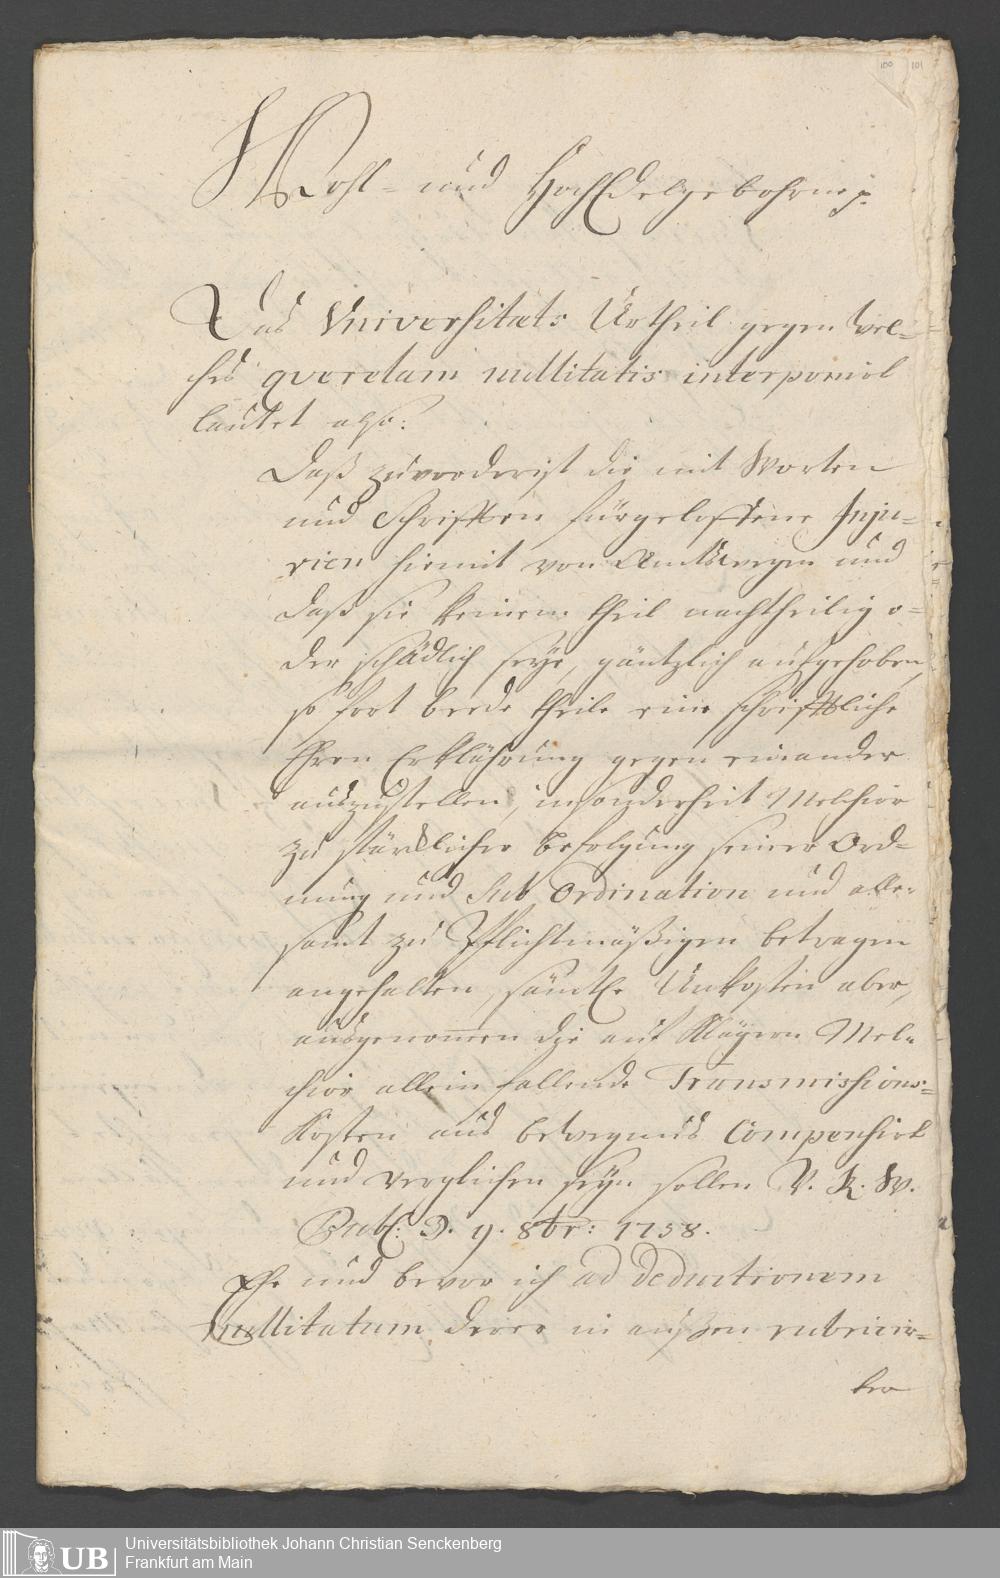 100 101
Wohl- und HochEdelgebohrne p.
Das Universitæts Urtheil gegen wel-
ches querelam nullitatis interponirt
lautet also:
Daß zuvorderist die mit Worten
und Schrifften fürgeloffene Inju-
rien hiemit von Amtswegen und
daß sie keinem theil nachtheilig o-
der schädlich seye, gäntzlich aufgehoben,
so fort beede theile eine schrifftliche
Ehren Erklährung gegen einander
auszustellen, insonderheit Melchior
zu stärcklicher befolgung seiner Ord-
nung und Sub Ordination und alle-
samt zu Pflichtmäßigen betragen
angehalten, sämtle Unkosten aber,
ausgenomen die auf Klägern Mel-
chior allein fallende Transmissions-
Kosten aus bewegnus Compensirt
und verglichen seyn sollen V. R. W.
Publ: D. 9. 8br: 1758.
Ehe und bevor ich ad deductionem
Nullitatum derer in außen rubricir-
ter
UB
Universitätsbibliothek Johann Christian Senckenberg
Frankfurt am Main